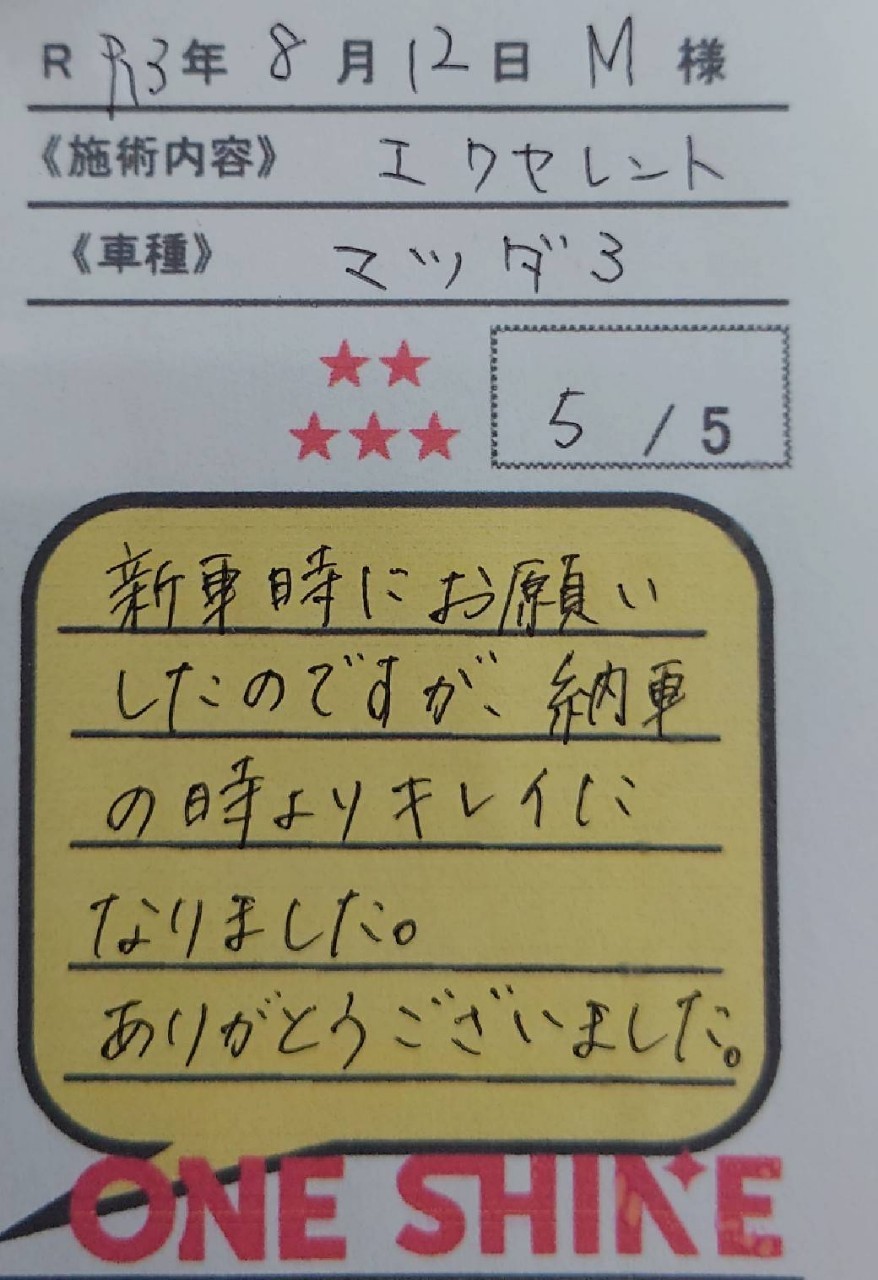 R R3年 8月 12日 M 様
《施術内容》 エクセレント
《車種》 マツダ3
★★
★★★ 5 / 5
新車時にお願い
したのですが、納車
の時よりキレイに
なりました。
ありがとうございました。
ONE SHINE